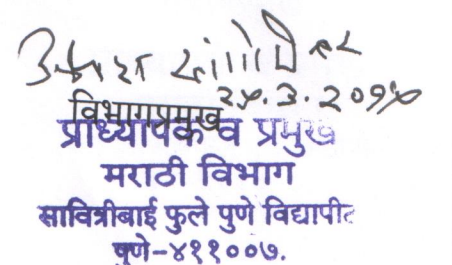 २५.३.२०१५
विभागप्रमुख
प्राध्यापक व प्रमुख
मराठी विभाग
सावित्रीबाई फुले पुणे विद्यापीठ
पुणे-४११००७.